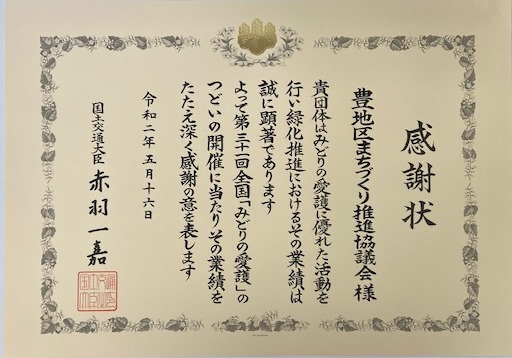 感謝状
豊地区まちづくり推進協議会 様
貴団体はみどりの愛護に優れた活動を
行い緑化推進におけるその業績は
誠に顕著であります
よって第三十一回全国「みどりの愛護」の
つどいの開催に当たりその業績を
たたえ深く感謝の意を表します
令和二年五月十六日
国土交通大臣 赤羽一嘉